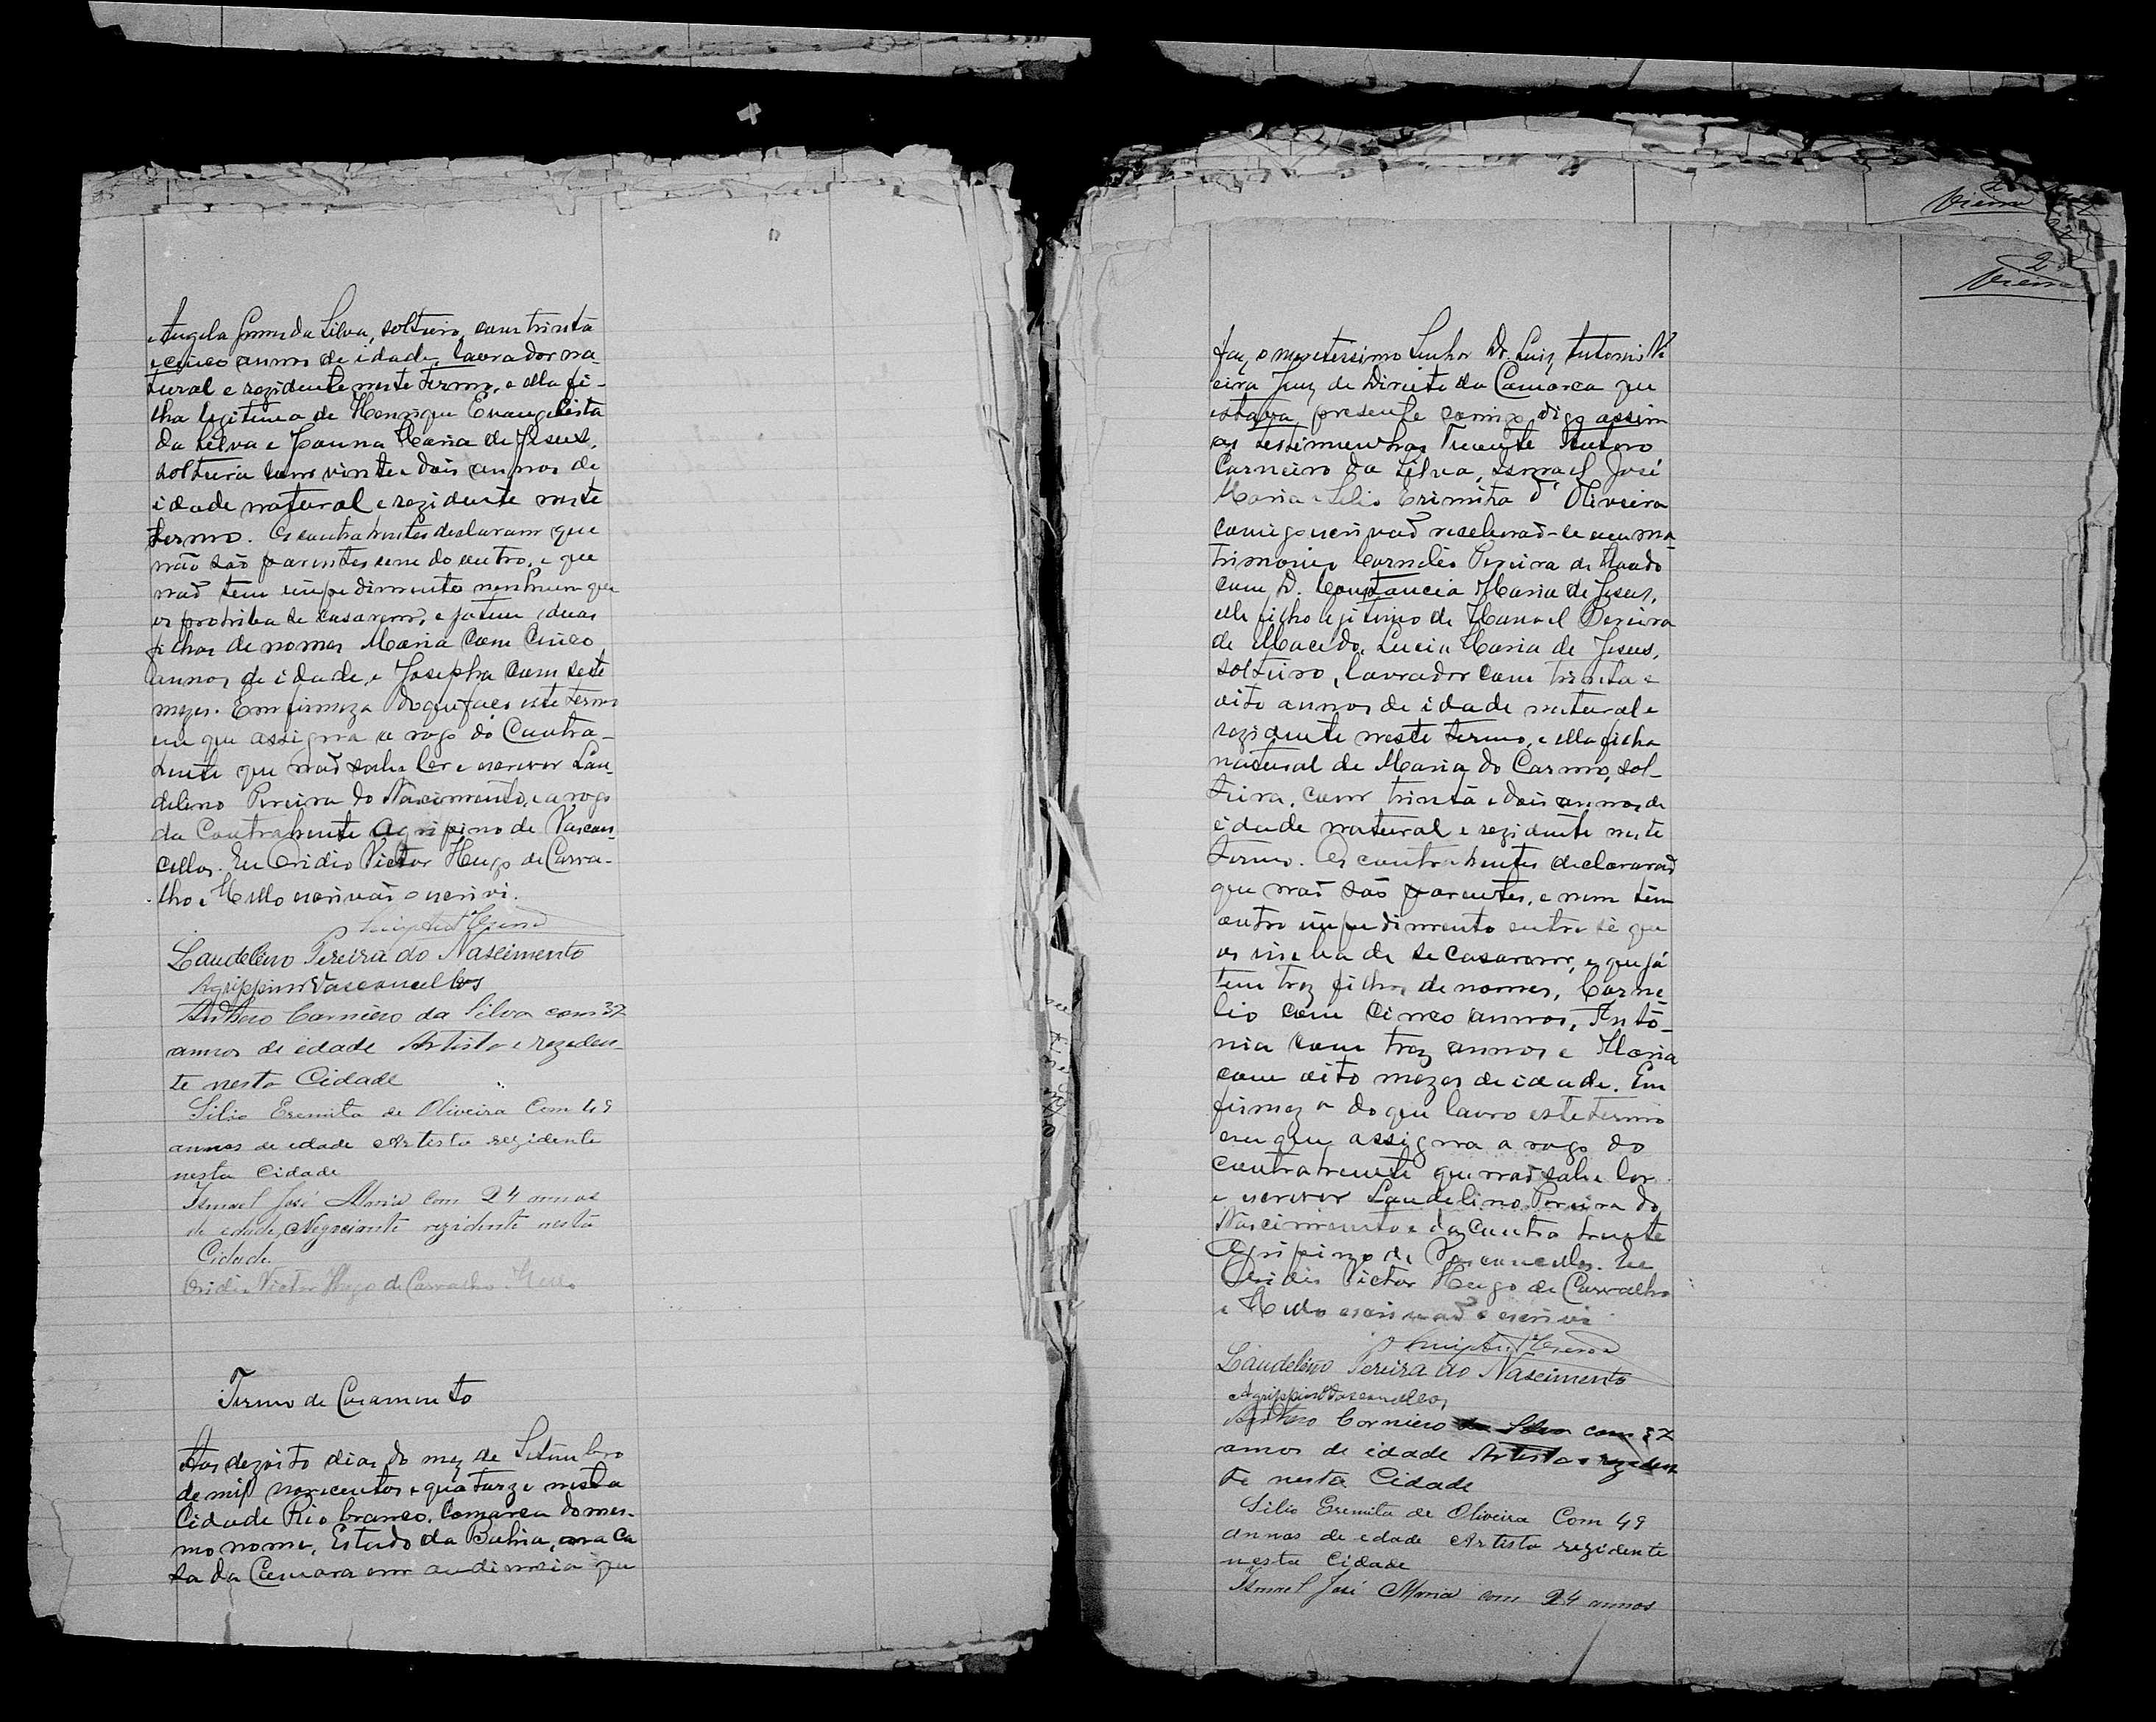 Angela Gomes da Silva, solteiro, com trinta
e cinco annos de idade, lavrador na
tural e rezidente neste termo, e ella fi-
lha legitima de Henrique Evangelista
da Silva e Joanna Maria de Jesus,
solteira com vinte e dois annos de
idade natural e rezidente neste
termo. Os contrahentes declaram que
não são parentes um do outro, e que
não tem impedimento nenhum que
os prohiba de casarem, e já tem duas
filhas de nomes Maria com cinco
annos de idade, e Josepha com sete
mezes. Em firmeza do que faço este termo
em que assigna a rogo do Contra-
hente que não sabe ler e escrever Lau-
delino Pereira do Nascimento, e a rogo
da Contrahente Agripino de Vascon-
cellos. Eu Ovidio Victor Hugo de Carva-
lho e Mello escrivão o escrivi.
Laudelino Pereira do Nascimento
Agrippino Vasconcellos
Anthero Carneiro da Silva com 37
annos de edade Artista e reziden-
te nesta Cidade
Silio Eremita de Oliveira Com 49
annos de edade Artista rezidente
nesta Cidade
Ismael José Maria com 24 annos
de edade, Negociante rezidente nesta
Cidade.
Ovidio Victor Hugo de Carvalho e Mello
Termo de Casamento
Aos dezoito dias do mez de Setembro
de mil novecentos e quatorze nesta
Cidade Rio branco, Comarca do mes-
mo nome, Estado da Bahia, na Ca
sa da Camara em audiencia que
2
Vieira
2
Vieira
faz o meretissimo Senhor Dr. Luiz Antonio Vi
eira Juiz de Direito da Comarca que
estava presente comigo digo assim
as testimunhas Tenente Antero
Carneiro da Silva, Ismael José
Maria e Silio Erimita d'Oliveira
comigo escrivão receberão-se em ma
trimonio Cornelio Pereira de Macedo
com D. Constancia Maria de Jesus,
elle filho legitimo de Manoel Pereira
de Macedo, Lucia Maria de Jesus,
solteiro, lavrador com trinta e
oito annos de idade natural e
rezidente neste termo, e ella filha
natural de Maria do Carmo, sol-
teira, com trinta e dois annos de
idade natural e rezidente neste
termo. Os contrahentes declararão
que não são parentes, e nem tem
outro impedimento entre si que
os iniba de se casarem, e que já
tem trez filhos de nomes, Corne
lio com cinco annos, Antô-
nia com trez annos e Maria
com oito mezes de idade. Em
firmeza do que lavro este termo
em que assigna a rogo do
contrahente que não sabe ler
e escrever Laudelino Pereira do
Nascimento e da Contrahente
Agripino de Vasconcellos. Eu
Ovidio Victor Hugo de Carvalho
e Mello escrivão o escrivi
Laudelino Pereira do Nascimento
Agrippino Vasconcellos
Anthero Carneiro da Silva com 37
annos de idade Artista e reziden
te nesta Cidade
Silio Eremita de Oliveira Com 49
annos de edade Artista rezidente
nesta Cidade
Ismael José Maria com 24 annos